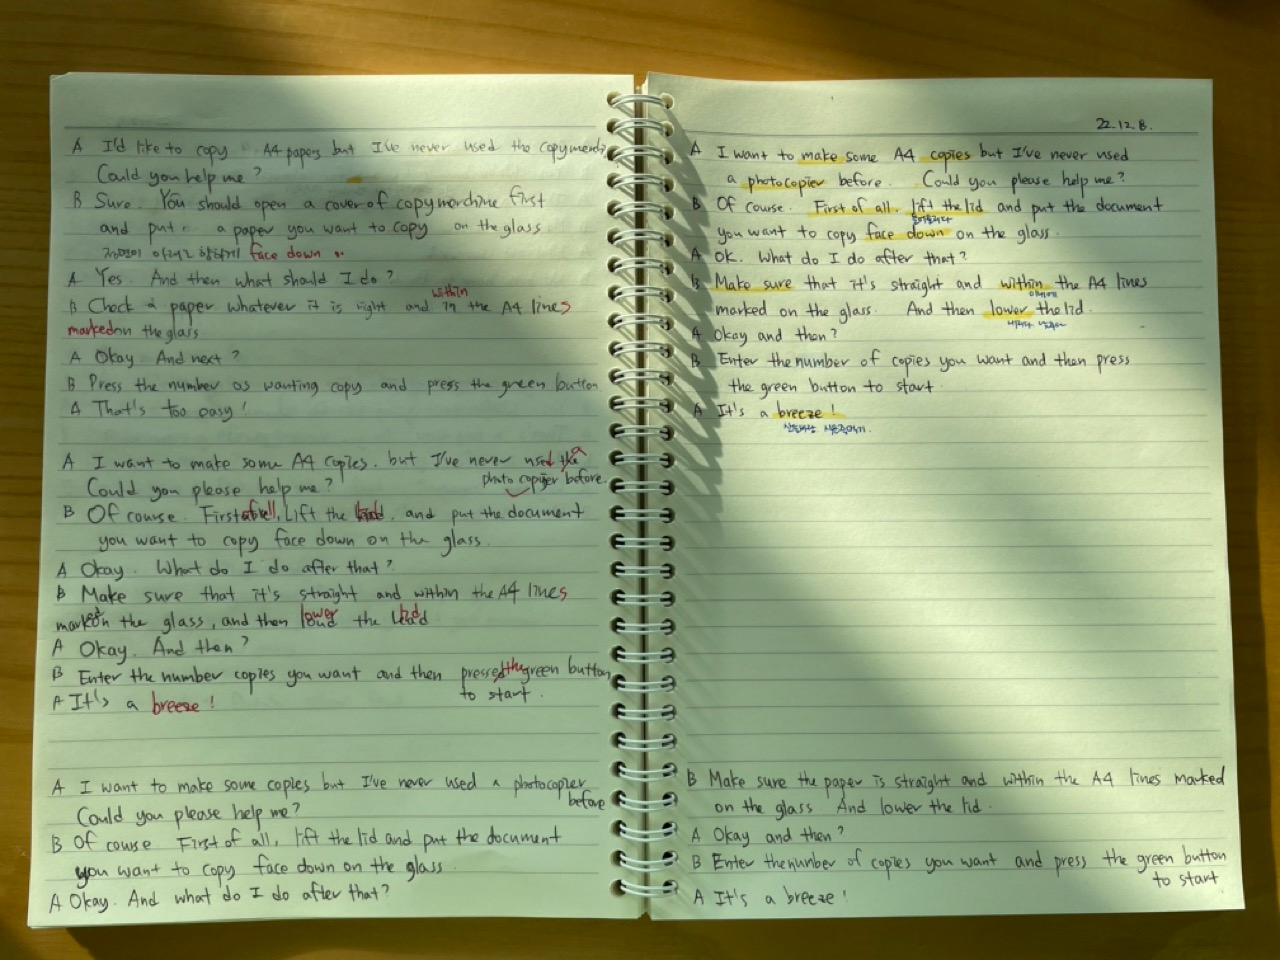 A I'd like to copy A4 papers but I've never used the copymachine
Could you help me?
B Sure. You should open a cover of copymachine first
and put a paper you want to copy on the glass
아래로 향하게 face down
A Yes. And then what should I do?
within
B Check a paper whatever it is right and in the A4 lines
marked on the glass
A Okay. And next?
B Press the number as wanting copy and press the green button
A That's too easy!
A I want to make some A4 copies. but I've never used a
Could you please help me? photo copier before.
B Of course. First of all, Lift the lid. and put the document
you want to copy face down on the glass.
A Okay. What do I do after that?
B Make sure that it's straight and within the A4 lines
marked on the glass, and then lower the lid
A Okay. And then?
B Enter the number copies you want and then press the green button
to start.
A It's a breeze!
A I want to make some copies but I've never used a photocopier
before
Could you please help me?
B Of course First of all, lift the lid and put the document
you want to copy face down on the glass.
A Okay. And what do I do after that?
22.12.8.
A I want to make some A4 copies but I've never used
a photocopier before. Could you please help me?
B Of course. First of all, lift the lid and put the document
들어올리다
you want to copy face down on the glass.
A OK. What do I do after that?
B Make sure that it's straight and within the A4 lines
이내에
marked on the glass. And then lower the lid.
내리다 낮추다
A Okay and then?
B Enter the number of copies you want and then press
the green button to start.
A It's a breeze!
산들바람 식은죽먹기.
B Make sure the paper is straight and within the A4 lines marked
on the glass And lower the lid.
A Okay and then?
B Enter the number of copies you want and press the green button
to start
A It's a breeze!